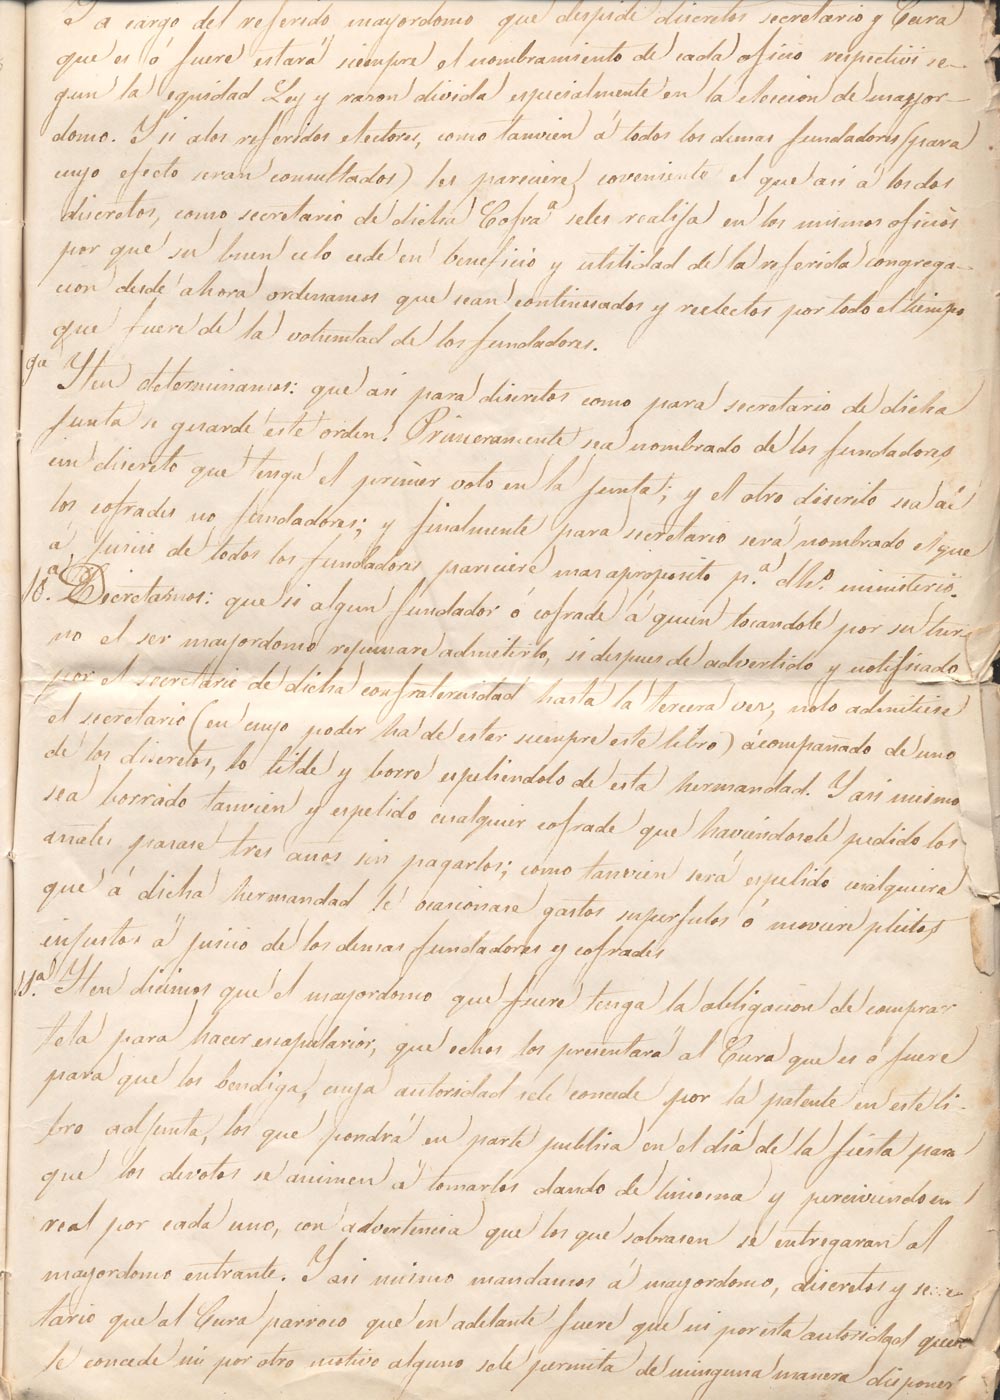 Y a cargo del referido mayordomo que despide discretos secretario y Cura
que es ó fuere estará siempre el nombramiento de cada oficio respectivi se-
gun la equidad Ley y razon divida especialmente en la elecion de mayor-
domo. Y si alos referidos electores, como tanvien á todos los demas fundadores (para
cuyo efecto seran consultados) les pareciere coveniente el que asi á los dos
discretos, como secretario de dicha Cofra.ª seles realija en los mismos oficios
por que su buen celo cede en beneficio y utilidad de la referida congrega-
cion desde ahora ordenamos que sean continuados y reelectos por todo el tiempo
que fuere de la voluntad de los fundadores.
9ª Yten determinamos: que asi para discretos como para secretario de dicha
junta se guarde este orden. Primeramente sea nombrado de los fundadores
un discreto que tenga el primer voto en la junta; y el otro discrito sea de
los cofrades no fundadores; y finalmente para secretario será nombrado el que
á juicio de todos los fundadores pareciere mas aproposito p.ª dho. ministerio.
10.ª Decretamos: que si algun fundador ó cofrade á quien tocandole por su tur-
no el ser mayordomo repunare admitirlo, si despues de advertido y notificado
por el secretario de dicha confraternidad hasta la tercera ves, nolo admitiese
el secretario (en cuyo poder ha de estar siempre este libro) acompañado de uno
de los discretos, lo tilde y borre espeliendolo de esta hermandad. Y asi mismo
sea borrado tanvien y espelido cualquier cofrade que haviendosele pedido los
anales pasase tres años sin pagarlos; como tanvien será espelido cualquiera
que á dicha hermandad le ocasionase gastos superfulos ó moviere pleitos
injustos á juicio de los demas fundadores y cofrades
11.ª Yten dicimos que el mayordomo que fuere tenga la obligacion de comprar
tela para hacer escapularios, que echos los presentará al Cura que es ó fuere
para que los bendiga, cuya autoridad sele concede por la patente en este li-
bro adjunta, los que pondrá en parte publica en el dia de la fiesta para
que los devotos se animen á tomarlos dando de limosna y perciviendo un
real por cada uno, con advertencia que los que sobrasen se entregaran al
mayordomo entrante. Y asi mismo mandamos á mayordomo, discretos y secre-
tario que al Cura parroco que en adelante fuere que ni por esta autoridad que
se concede ni por otro motivo alguno sele permita de ninguna manera disponer